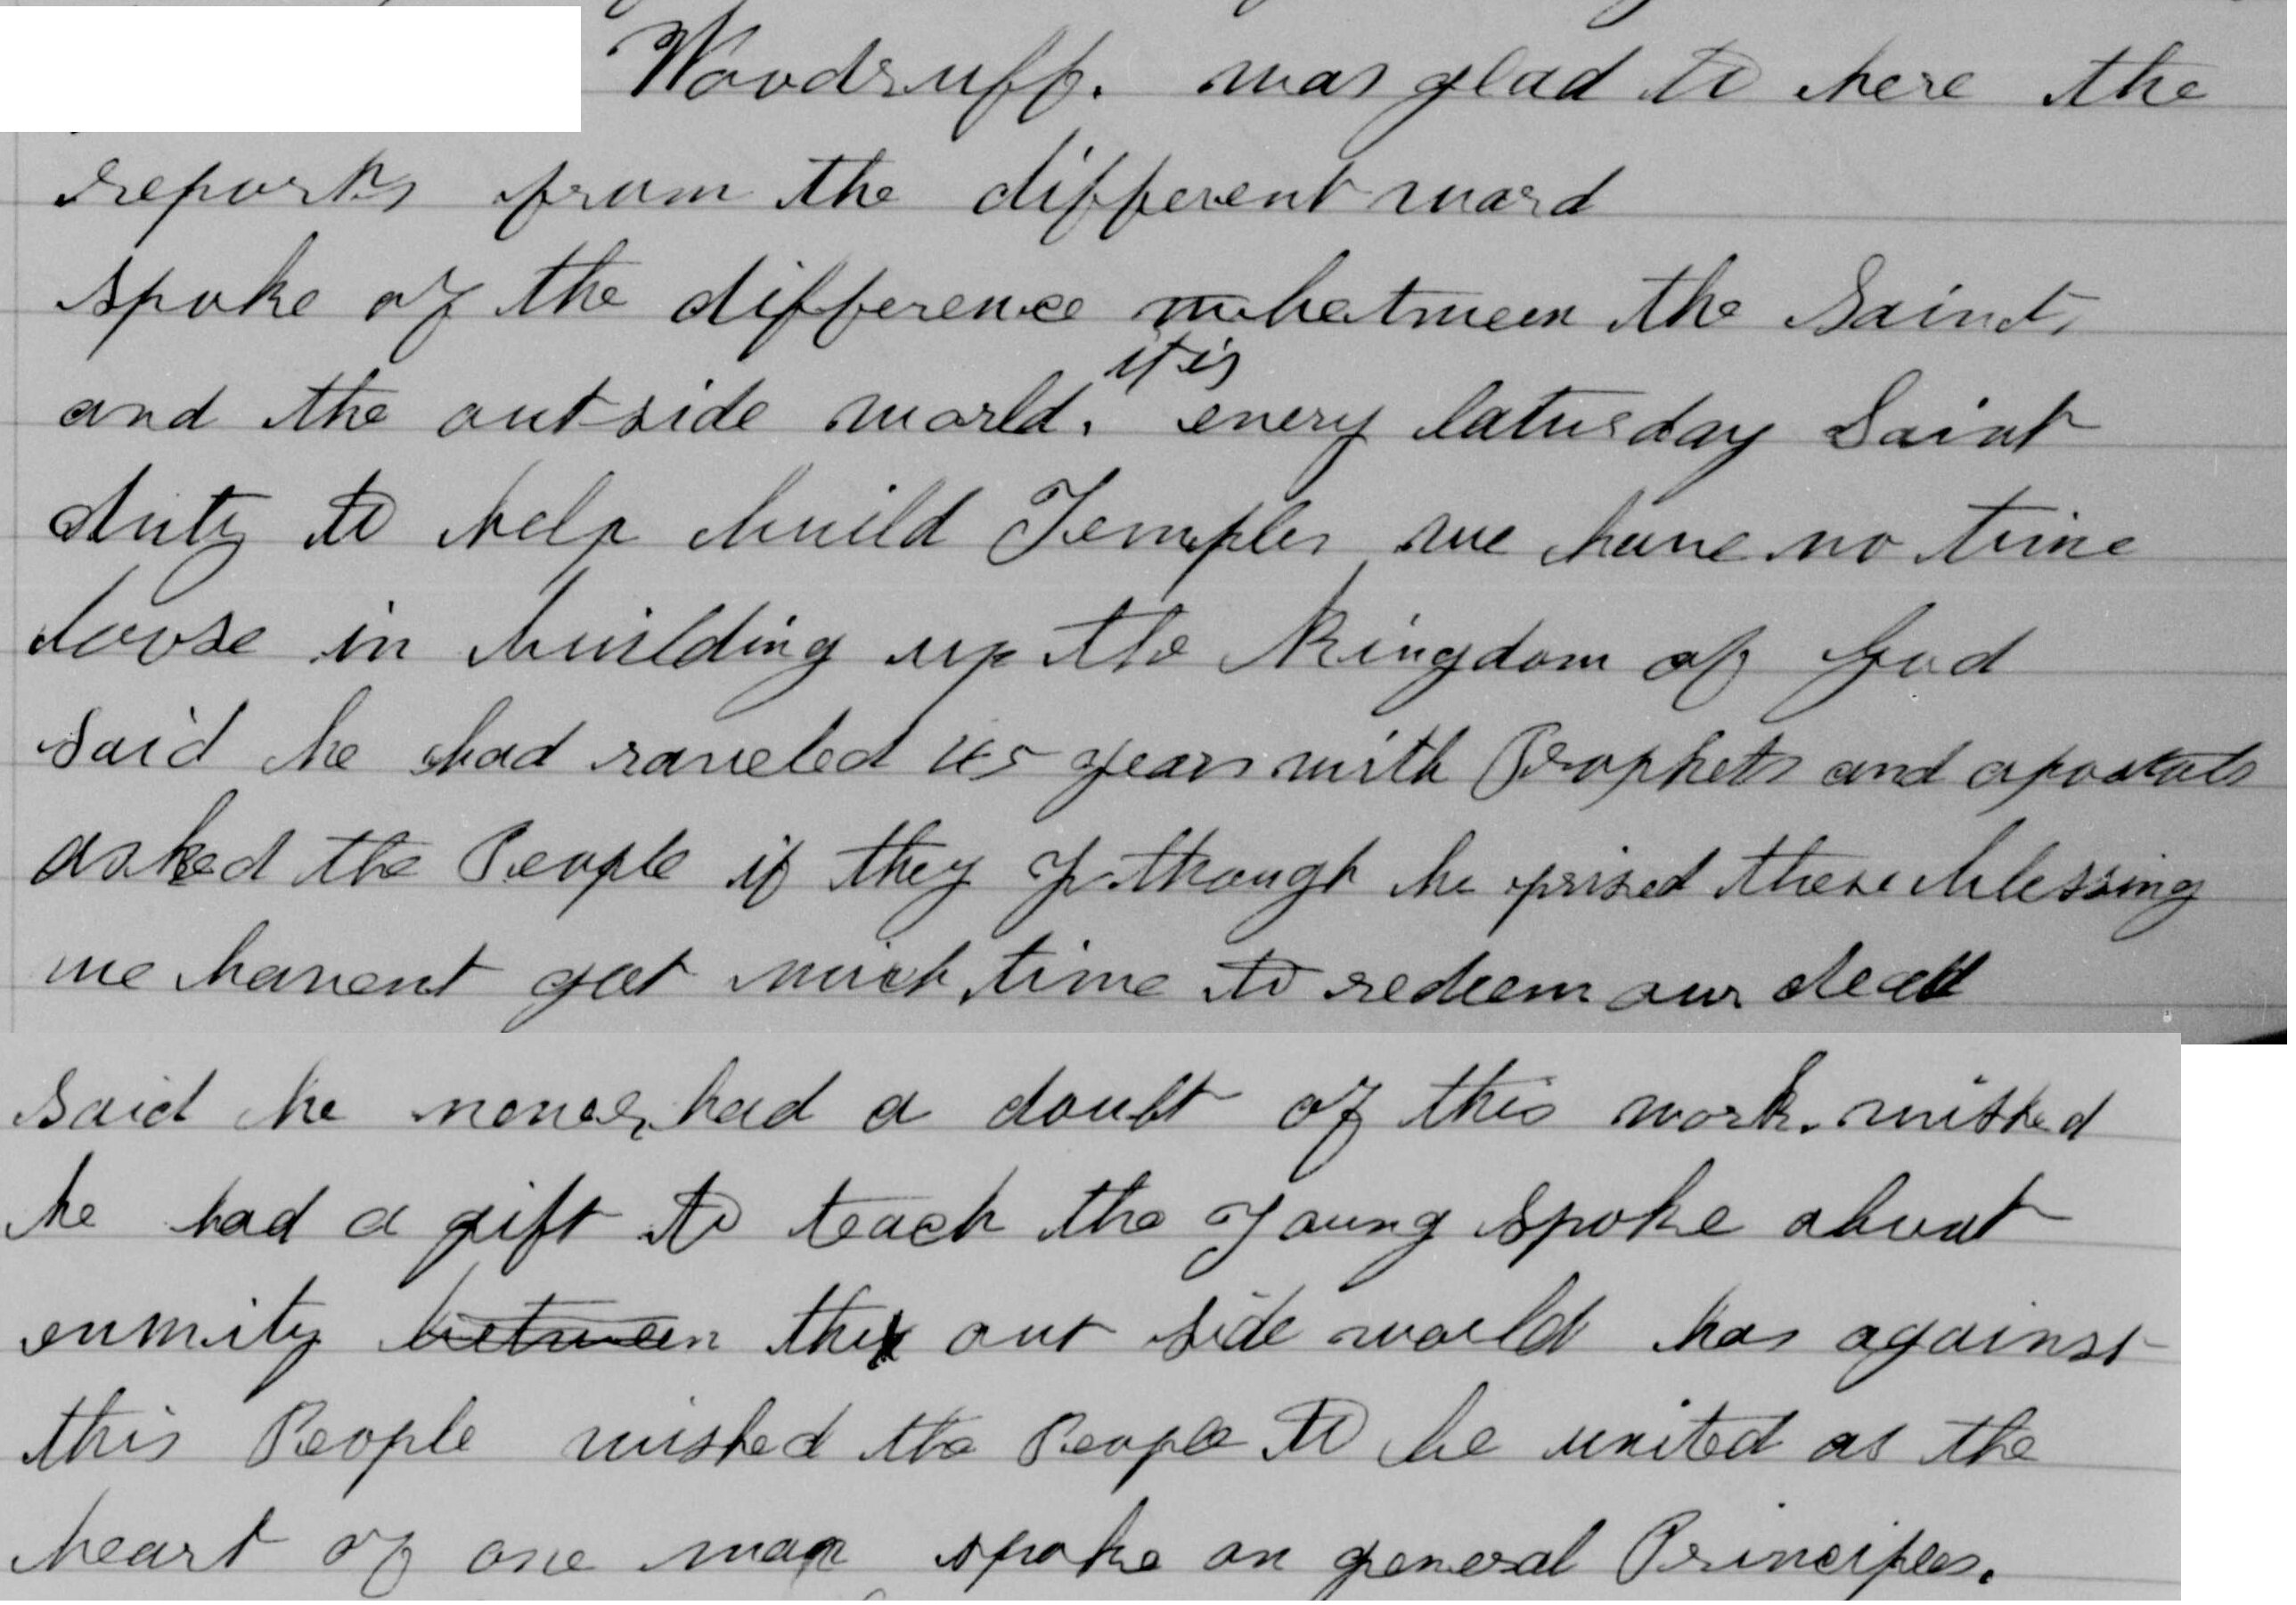 Woodruff. was glad to here the
reports from the different ward
spoke of the difference between the Saints
and the outside world. it is every laturday Saint
duty to help build Temples we have no time
loose in building up the Kingdom of God
said he had raveled 45 years with Prophets and apostals
asked the People if they though he prised these blessing
we havent got much time to redeem our dead
said he never had a doubt of this work. wished
he had a gift to teach the young spoke about
enmity between the out side world has against
this People wished the People to be united as the
heart of one man spoke on general Principles.